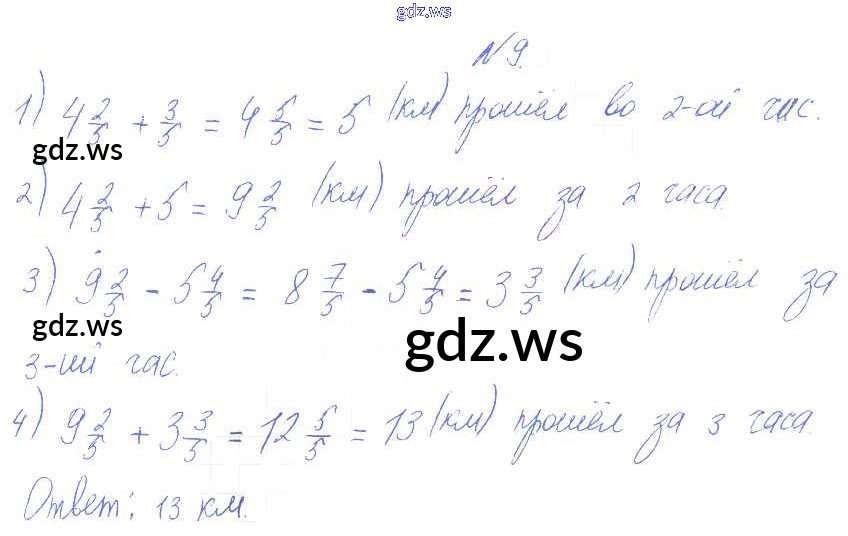 gdz.ws
№ 9.
1) 4 2/5 + 3/5 = 4 5/5 = 5 (км) прошёл во 2-ой час.
gdz.ws
2) 4 2/5 + 5 = 9 2/5 (км) прошёл за 2 часа.
3) 9 2/5 - 5 4/5 = 8 7/5 - 5 4/5 = 3 3/5 (км) прошёл за
gdz.ws
gdz.ws
3-ий час.
4) 9 2/5 + 3 3/5 = 12 5/5 = 13 (км) прошёл за 3 часа.
Ответ: 13 км.